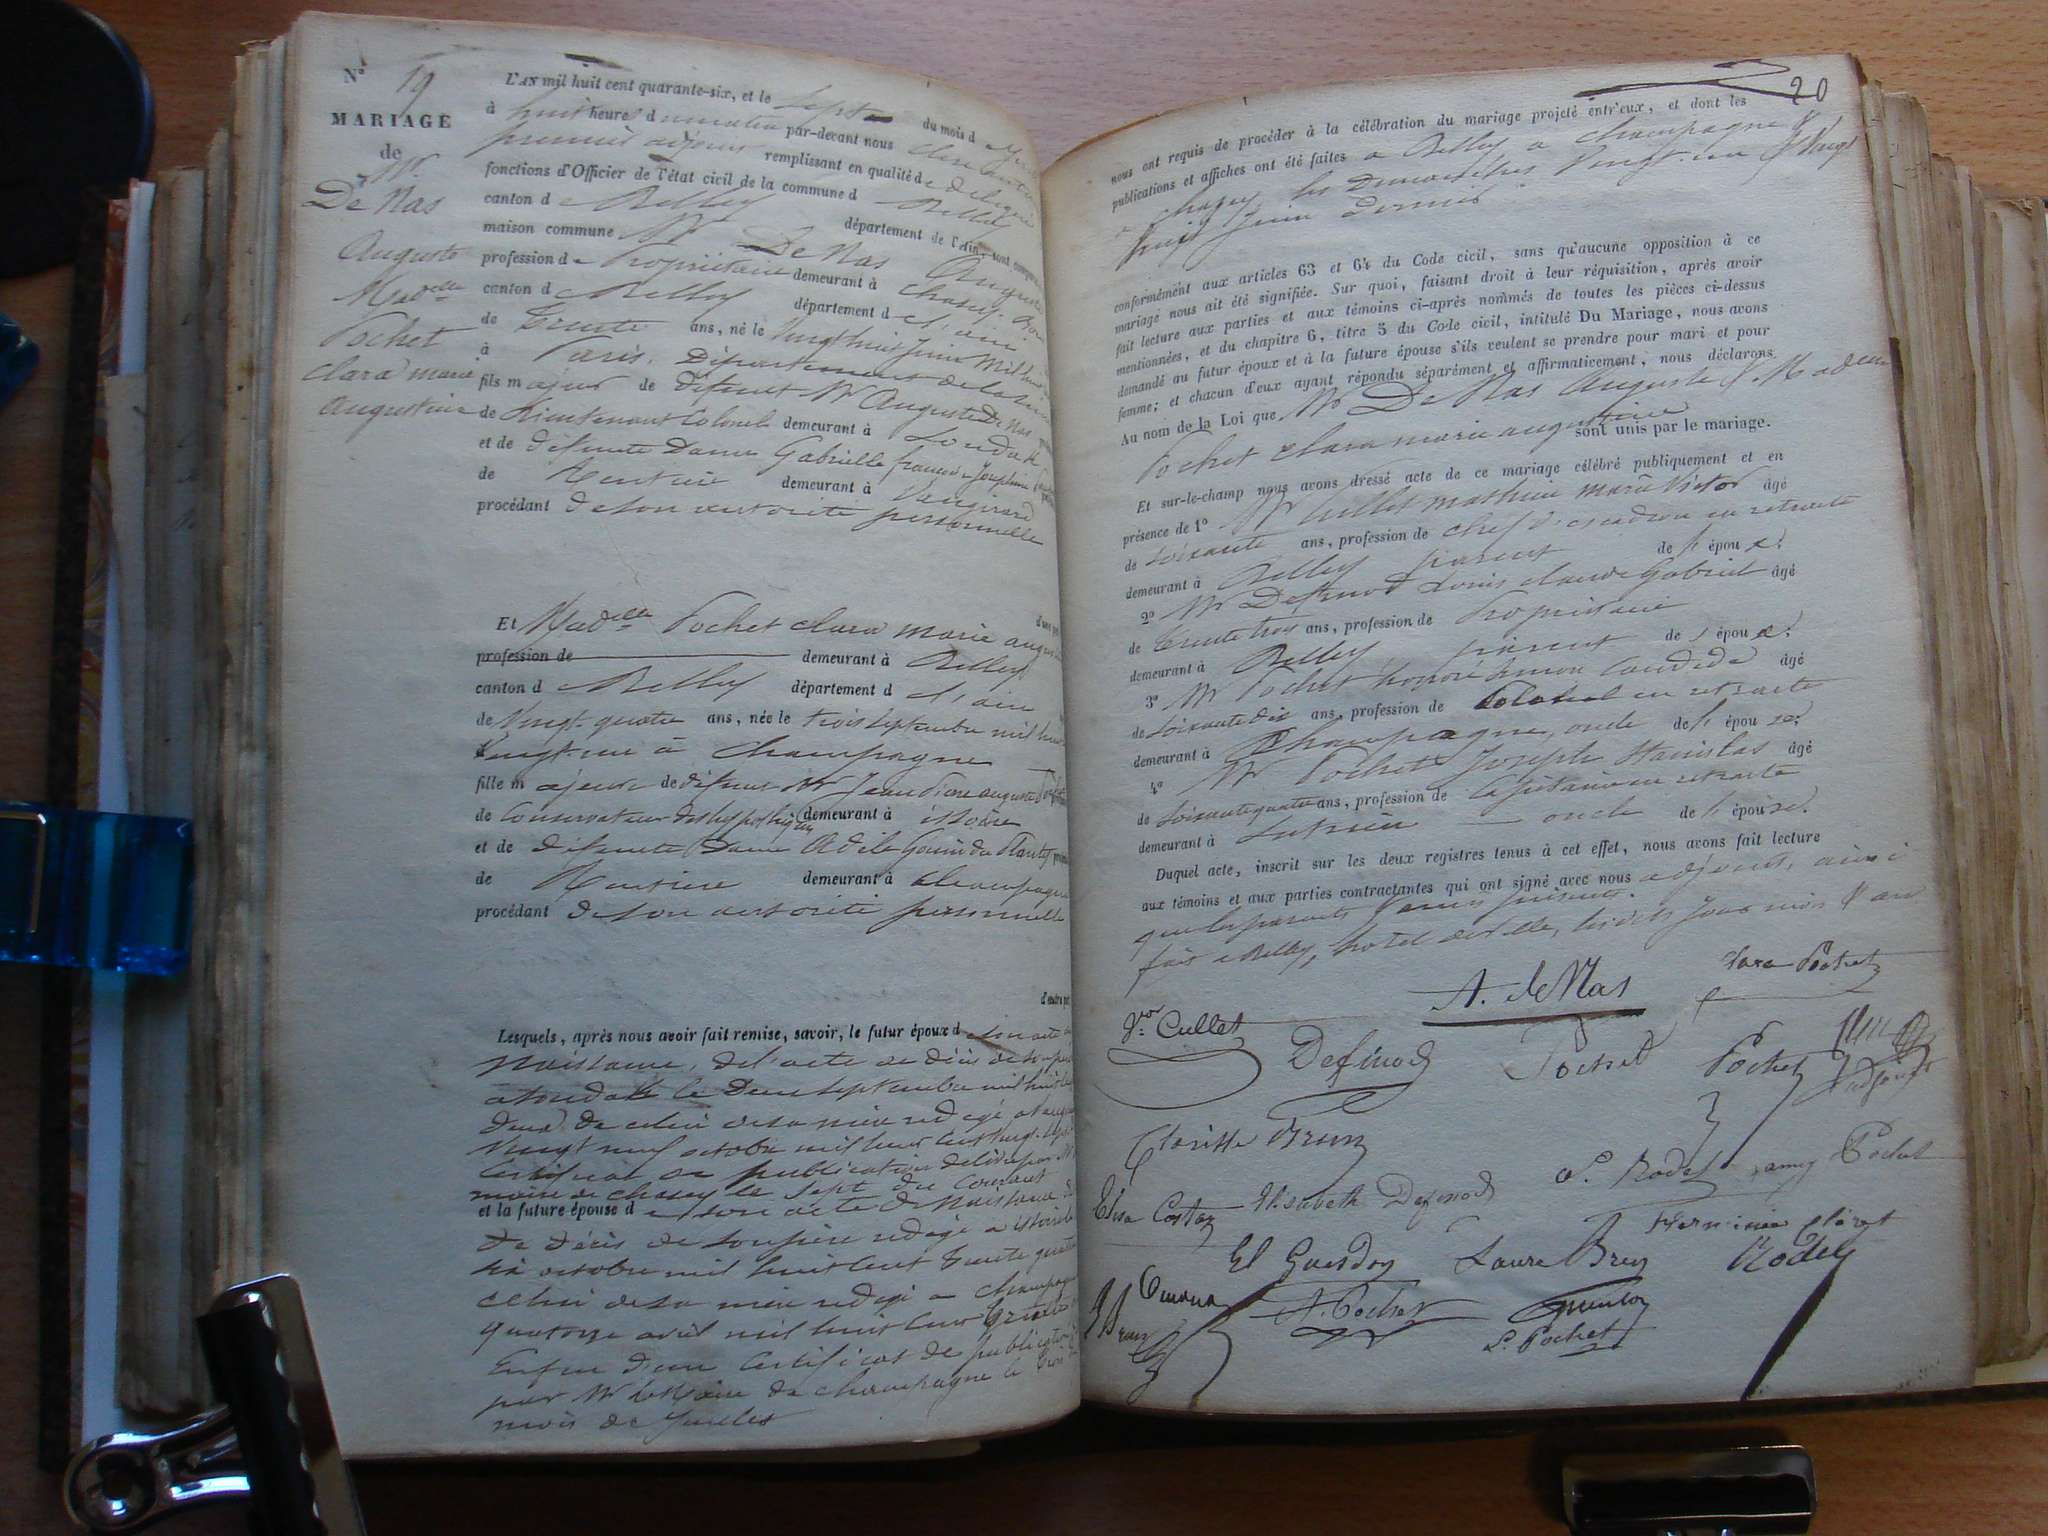 N° 19
MARIAGE
de
Mr
De Nas
Auguste
Madelle
Pochet
clara marie
augustine
L'AN mil huit cent quarante-six, et le sept du mois d
à huit heures d par-devant nous
premier adjoint remplissant en qualité de délégué
fonctions d'Officier de l'état civil de la commune d Belley
canton d e Belley département de l'Ain, sont comparus
maison commune Mr De Nas Auguste
profession de Propriétaire demeurant à chazey
canton d e Belley département d e l'ain
de Trente ans, né le vingt huit juin mil huit
à Paris, Département de la Seine
fils majeur de défunt Mr Auguste De Nas
de Lieutenant Colonel demeurant à
et de défunte Dame Gabrielle françoise Joséphine
de Rentière demeurant à Vaugirard
procédant de son autorité personnelle
Et Madelle Pochet clara marie augustine
profession de demeurant à Belley
canton d e Belley département d e l'ain
de Vingt-quatre ans, née le trois septembre mil huit
vingt-un à champagne
fille majeure de défunt Mr Jean Pierre auguste Pochet
de Conservateur des hypothèques demeurant à issoire
et de défunte Dame Adèle
de Rentière demeurant à champagne
procédant de son autorité personnelle
d'autre part
Lesquels, après nous avoir fait remise, savoir, le futur époux d e son acte de
Naissance, de l'acte de décès de son père
le Deux septembre mil huit cent
Deux de celui de sa mère redigé a Vaugirard
Vingt neuf octobre mil huit cent vingt-sept
Certificat de publication délivré par Mr
maire de chazey le sept du Courant
et la future épouse d e son acte de Naissance de
De décès de son père redigé a issoire le
six octobre mil huit cent trente quatre
celui de sa mère redigé a champagne
quatorze avril mil huit cent trente
Enfin d'un certificat de publication
par Mr le Maire de champagne le
mois de Juillet
20
nous ont requis de procéder à la célébration du mariage projeté entr'eux, et dont les
publications et affiches ont été faites a Belley a champagne &
a chazey les Dimanches Vingt-un & Vingt
huit juin dernier
conformément aux articles 63 et 64 du Code civil, sans qu'aucune opposition à ce
mariage nous ait été signifiée. Sur quoi, faisant droit à leur réquisition, après avoir
fait lecture aux parties et aux témoins ci-après nommés de toutes les pièces ci-dessus
mentionnées, et du chapitre 6, titre 5 du Code civil, intitulé Du Mariage, nous avons
demandé au futur époux et à la future épouse s'ils veulent se prendre pour mari et pour
femme; et chacun d'eux ayant répondu séparément et affirmativement, nous déclarons
Au nom de la Loi que Mr De Nas Auguste & Madelle
Pochet clara marie augustine sont unis par le mariage.
Et sur-le-champ nous avons dressé acte de ce mariage célébré publiquement et en
présence de 1° Mr Cullet mathieu marie Victor âgé
de soixante ans, profession de chef d'escadron en retraite
demeurant à Belley parent de l'époux
2° Mr Definod Louis claude Gabriel âgé
de trente trois ans, profession de Propriétaire
demeurant à Belley parent de l'époux
3° Mr Pochet honoré âgé
de soixante dix ans, profession de Colonel en retraite
demeurant à Champagne, oncle de l'épouse
4° Mr Pochet Joseph Stanislas âgé
de soixante quatre ans, profession de Capitaine en retraite
demeurant à oncle de l'épouse.
Duquel acte, inscrit sur les deux registres tenus à cet effet, nous avons fait lecture
aux témoins et aux parties contractantes qui ont signé avec nous adjoint, ainsi
que les parents & amis présents.
fait a Belley, hotel de ville, les dits jour mois & an
A. de Nas Clara Pochet
Vor Cullet Definod Pochet Pochet
Clarisse Brun
P. Rodet
Elisa Costaz Elisabeth Definod
Laure Brun Rodet
A. Pochet
P. Pochet